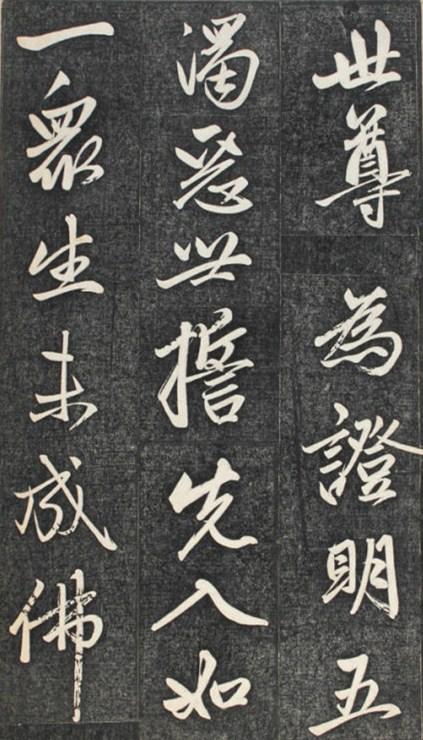 世尊 為證明五
濁惡世誓先入如
一眾生未成佛